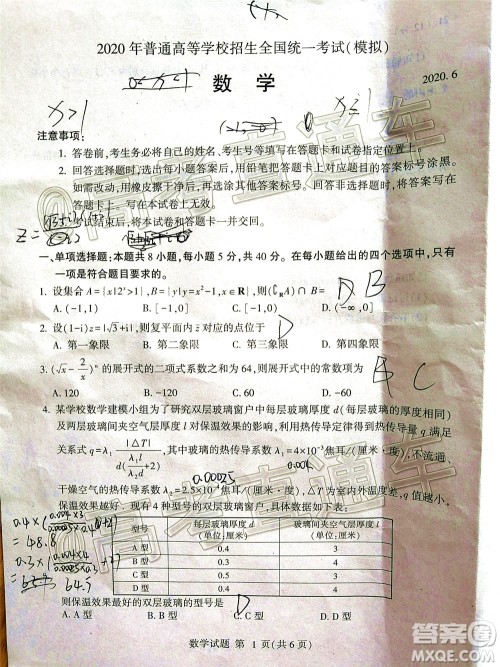 2020 年普通高等学校招生全国统一考试(模拟)
数 学
2020. 6
x>1
注意事项:
1. 答卷前,考生务必将自己的姓名、考生号等填写在答题卡和试卷指定位置.
2. 回答选择题时,选出每小题答案后,用铅笔把答题卡上对应题目的答案标号涂黑.
如需改动,用橡皮擦干净后,再选涂其他答案标号.回答非选择题时,将答案写在
答题卡上.写在本试卷上无效.
3. 考试结束后,将本试卷和答题卡一并交回.
一、单项选择题:本题共 8 小题,每小题 5 分,共 40 分。在每小题给出的四个选项中,只有
一项是符合题目要求的。
1. 设集合 A={x|2ˣ>1},B={y|y=x²-1,x∈R},(∁RA)∩B= D B
A. (-1,1) B. (-1,0) C. [-1,0] D. (-∞,0]
2. 设(1-i)z=|√3+i|,则复平面内 z 对应的点位于 D
A. 第一象限 B. 第二象限 C. 第三象限 D. 第四象限
3. (√x - 2/x)ⁿ 的展开式的二项式系数之和为 64,则展开式中的常数项为 B C
A. 120 B. -120 C. 60 D. -60
4. 某学校数学建模小组为了研究双层玻璃窗户中每层玻璃厚度 d(每层玻璃的厚度相同)
及两层玻璃间夹空气层厚度 l 对保温效果的影响,利用热传导定律得到热传导量 q 满足
关系式 q=λ₁|ΔT|/d(λ₁l/λ₂d+2),其中玻璃的热传导系数 λ₁=4×10⁻³焦耳/(厘米·度),不流通、
0.00025
干燥空气的热传导系数 λ₂=2.5×10⁻⁴焦耳/(厘米·度),ΔT 为室内外温度差,q 值越小,
保温效果越好,现有 4 种型号的双层玻璃窗户,具体数据如下:
型号 每层玻璃厚度 d(单位:厘米) 玻璃间夹空气层厚度 l(单位:厘米)
A 型 0.4 3
B 型 0.3 4
C 型 0.5 3
D 型 0.4 4
=48.8
64.5
则保温效果最好的双层玻璃的型号是 D
A. A 型 B. B 型 C. C 型 D. D 型
数学试题 第 1 页(共 6 页)
高考直通车
答案圈
MXQE.COM